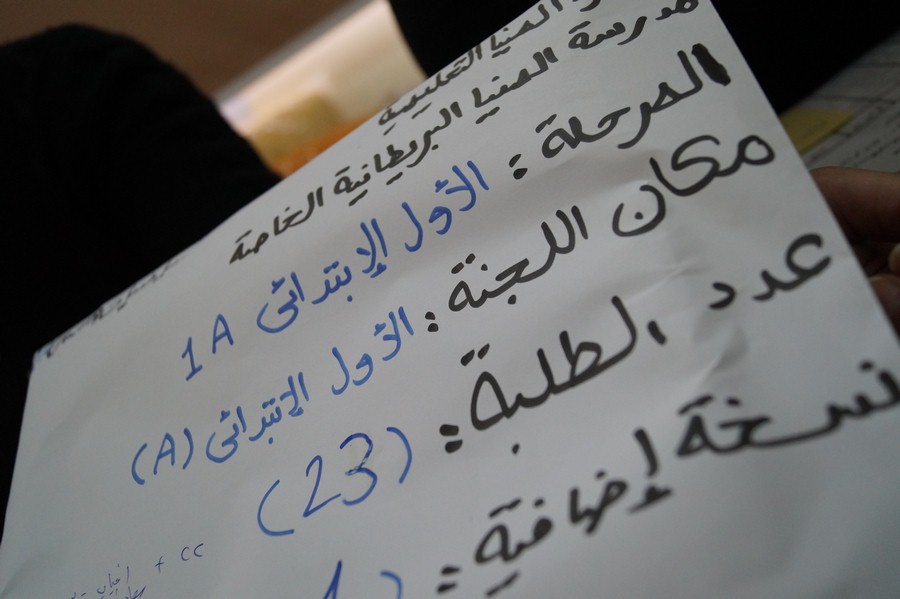 المنيا التعليمية
مدرسة المنيا البريطانية الخاصة
المرحلة : الأول الإبتدائى 1A
مكان اللجنة : الأول الإبتدائى (A)
عدد الطلبة : (23)
نسخة إضافية :